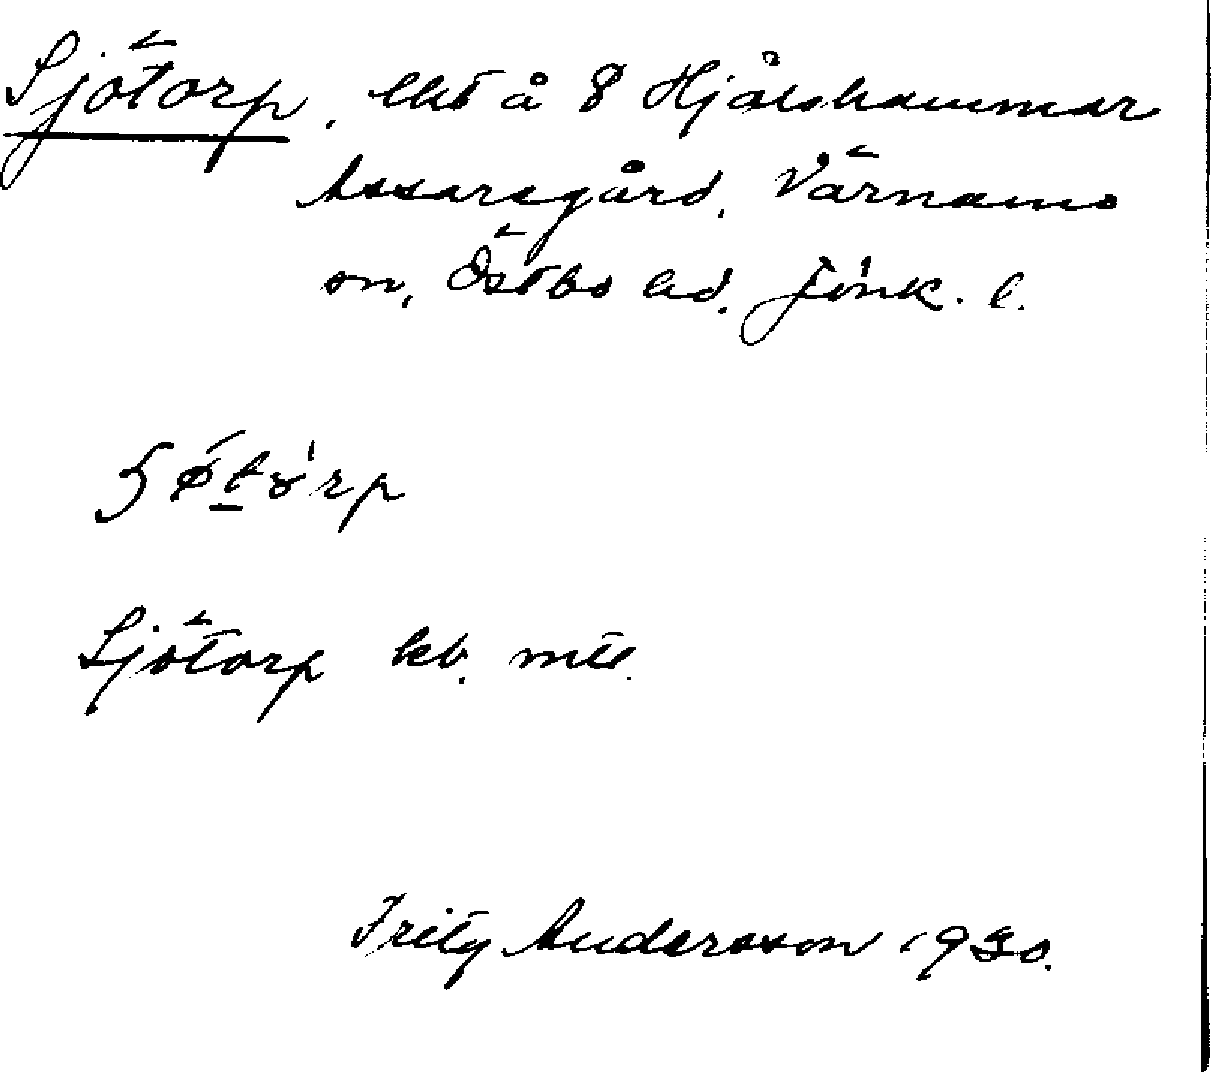 Sjötorp, lht å 8 Hjälshammar
Assaregård, Värnamo
sn, Östbo hd. Jönk. l.
Sjötorp kb. mtl.
Fritz Andersson 1930.